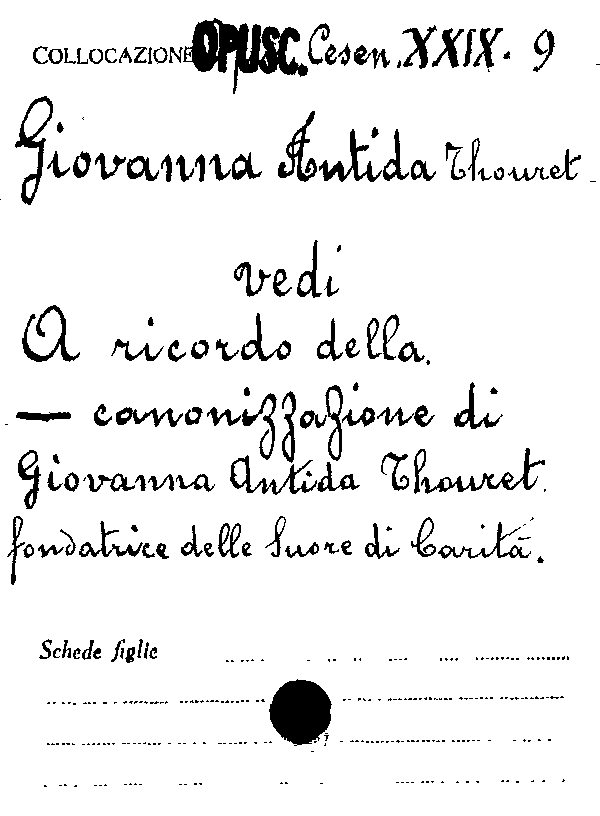 COLLOCAZIONE OPUSC. Cesen. XXIX. 9
Giovanna Antida Thouret
vedi
A ricordo della
— canonizzazione di
Giovanna Antida Thouret
fondatrice delle Suore di Carità.
Schede figlie